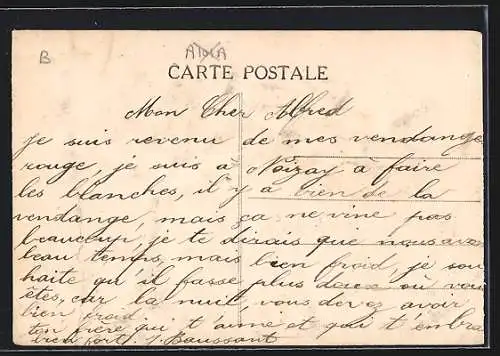 B
CARTE POSTALE
Mon Cher Alfred
Je suis revenu de mes vendange
rouge, je suis a Noizay à faire
les blanches, il y a bien de la
vendange, mais ça ne vine pas
beaucoup, je te dirais que nous avon
beau temps, mais bien froid, je sou
haite qu'il fasse plus doux où vou
êtes, car la nuit, vous devez avoir
bien froid
ton frère qui t'aime et qui t'embra
bien fort. J. Baussant